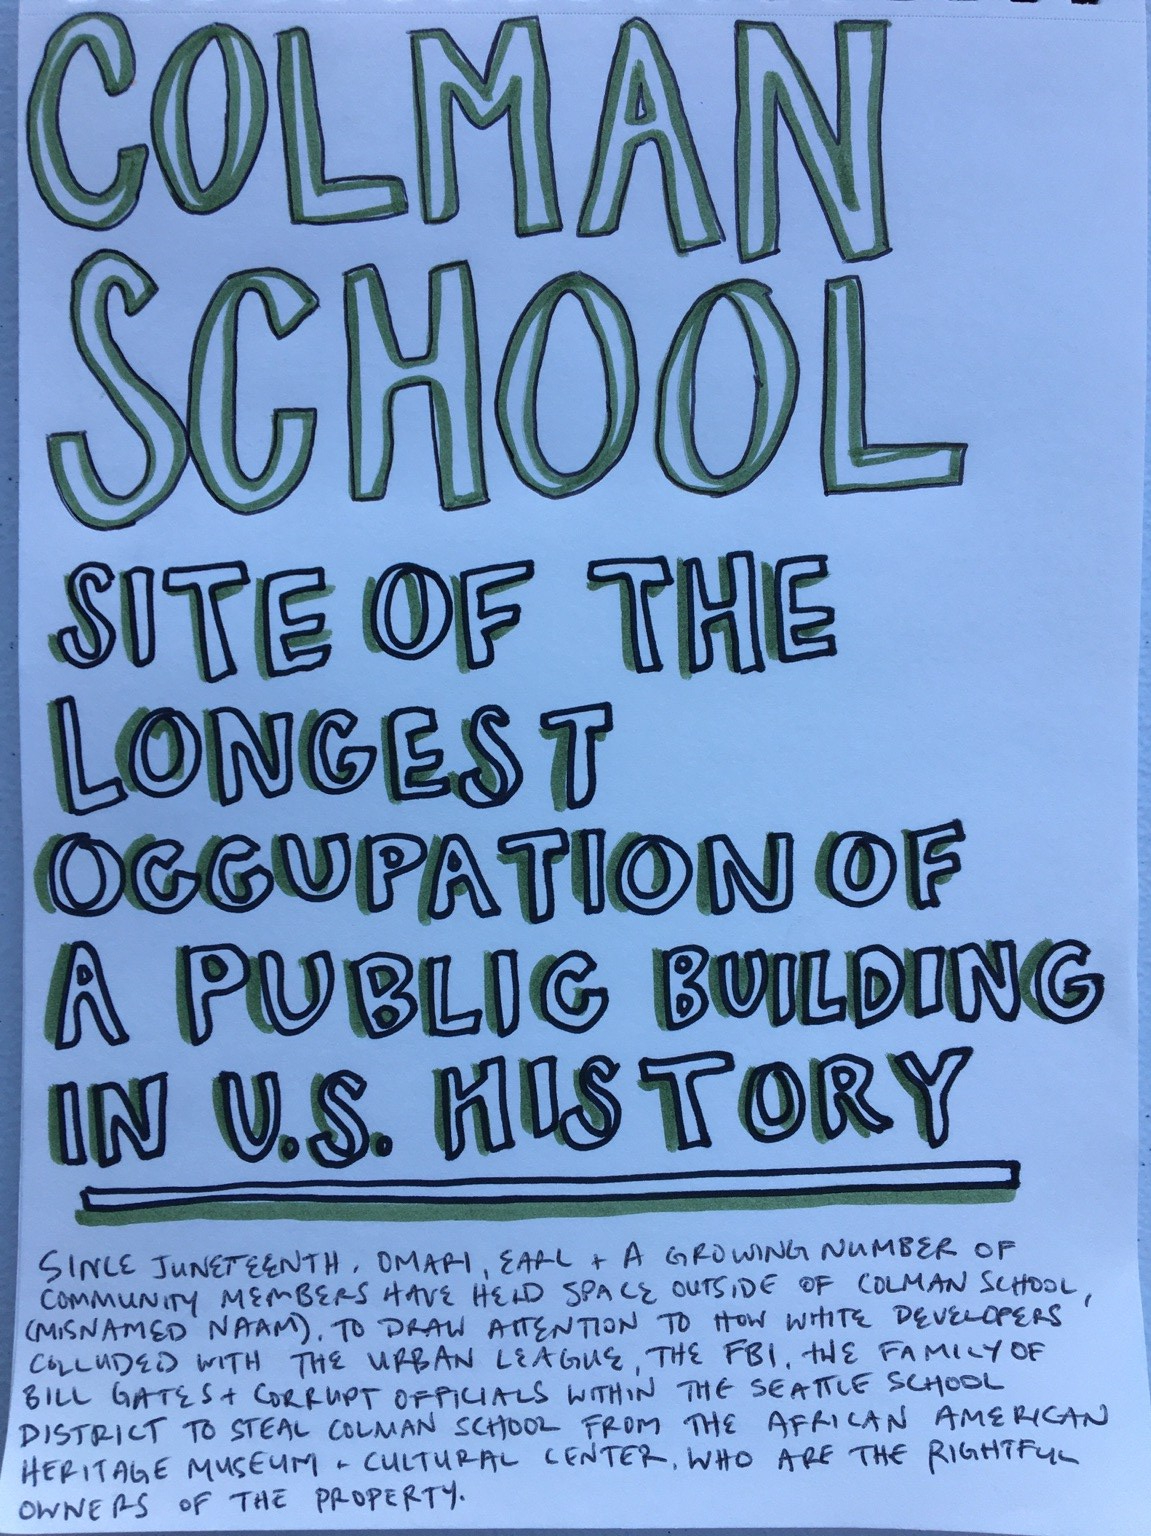 COLMAN
SCHOOL
SITE OF THE
LONGEST
OCCUPATION OF
A PUBLIC BUILDING
IN U.S. HISTORY
SINCE JUNETEENTH, OMARI, EARL + A GROWING NUMBER OF
COMMUNITY MEMBERS HAVE HELD SPACE OUTSIDE OF COLMAN SCHOOL,
(MISNAMED NAAM), TO DRAW ATTENTION TO HOW WHITE DEVELOPERS
COLLUDED WITH THE URBAN LEAGUE, THE FBI, THE FAMILY OF
BILL GATES + CORRUPT OFFICIALS WITHIN THE SEATTLE SCHOOL
DISTRICT TO STEAL COLMAN SCHOOL FROM THE AFRICAN AMERICAN
HERITAGE MUSEUM + CULTURAL CENTER, WHO ARE THE RIGHTFUL
OWNERS OF THE PROPERTY.